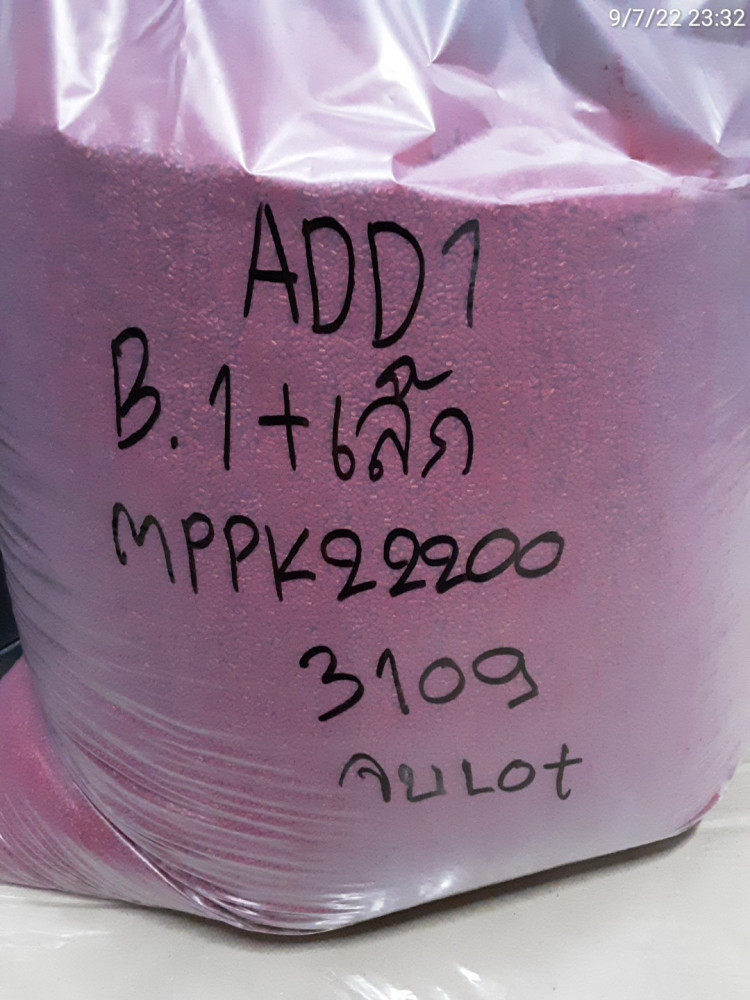 9/7/22 23:32
ADD1
B.1+เล็ก
MPPK22200
3109
จบLot